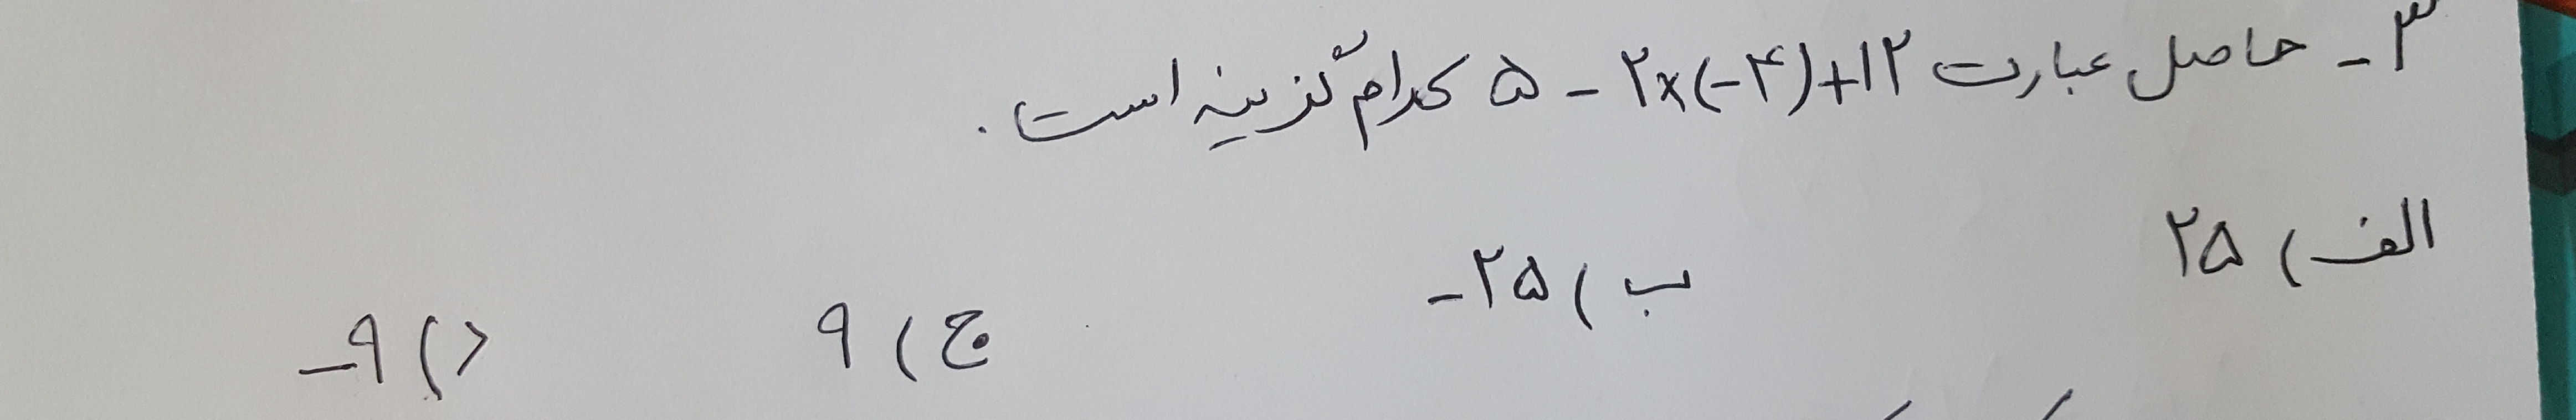 ۳ - حاصل عبارت ۵ - ۲×(-۴)+۱۲ کدام گزینه است.
الف) ۲۵
ب) -۲۵
ج) ۹
د) -۹